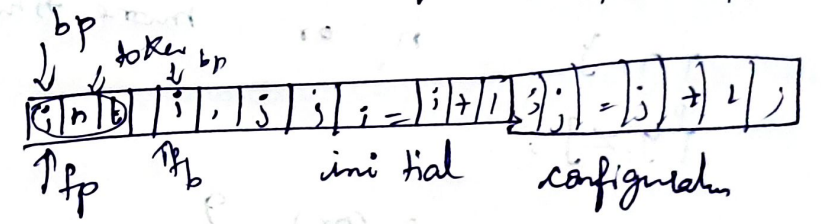 bp
token bp
i n t i , j ; i = i + 1 ; j = j + 1 ;
fp fb initial configuration